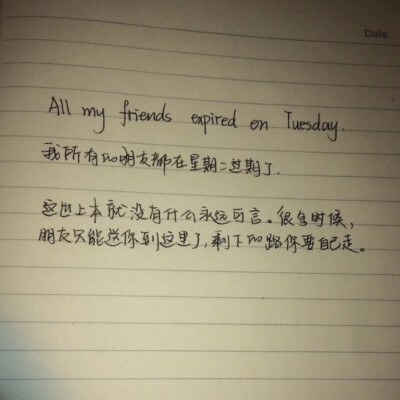 Date.
All my friends expired on Tuesday.
我所有的朋友都在星期二过期了.
这世上本就没有什么永远可言。很多时候,
朋友只能送你到这里了,剩下的路你要自己走。